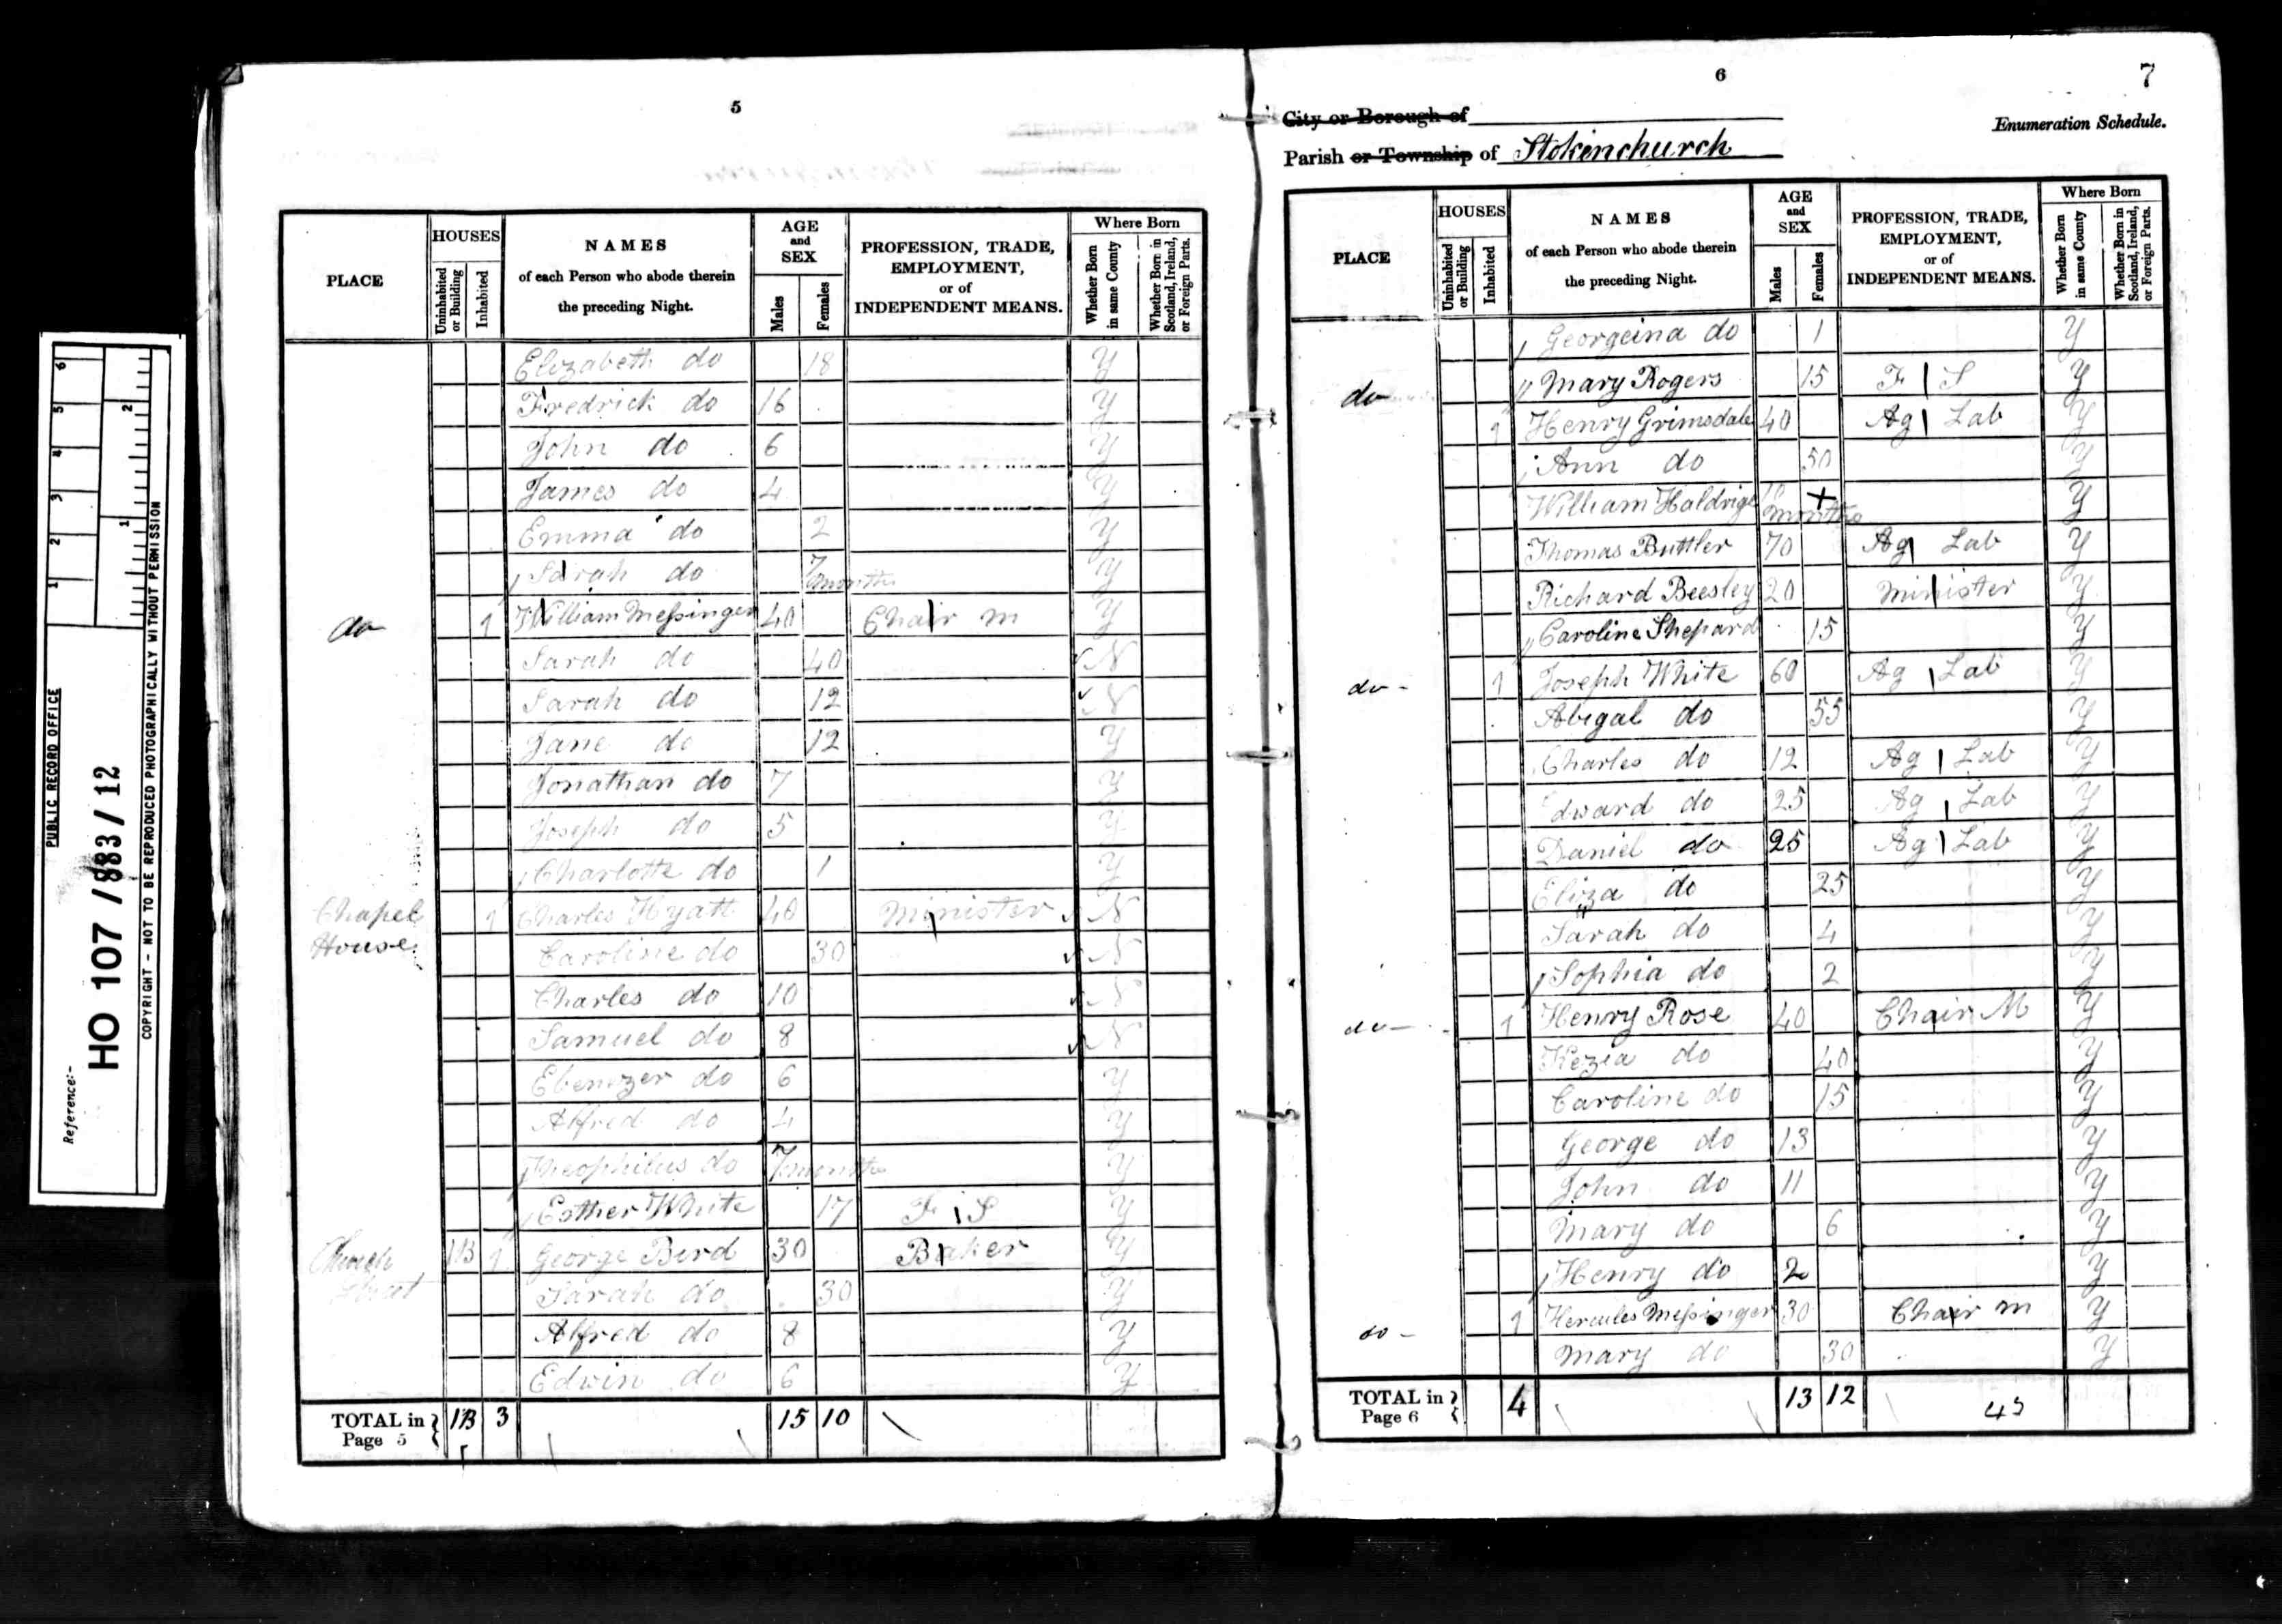 PUBLIC RECORD OFFICE
Reference:-
HO 107 /883/12
COPYRIGHT - NOT TO BE REPRODUCED PHOTOGRAPHICALLY WITHOUT PERMISSION
1 2 3 4 5 6
1 2
5
PLACE
HOUSES
Uninhabited or Building
Inhabited
NAMES
of each Person who abode therein
the preceding Night.
AGE
and
SEX
Males
Females
PROFESSION, TRADE,
EMPLOYMENT,
or of
INDEPENDENT MEANS.
Where Born
Whether Born in same County
Whether Born in Scotland, Ireland, or Foreign Parts.
Elizabeth do 18 Y
Fredrick do 16 Y
John do 6 Y
James do 4 Y
Emma do 2 Y
Sarah do 7 months Y
do 1 William Messinger 40 Chair m Y
Sarah do 40 N
Sarah do 12 N
Jane do 12 Y
Jonathan do 7 Y
Joseph do 5 Y
Charlotte do 1 Y
Chapel House 1 Charles Hyatt 40 Minister N
Caroline do 30 N
Charles do 10 N
Samuel do 8 N
Ebenezer do 6 Y
Alfred do 4 Y
Theophilus do 7 months Y
Esther White 17 F S Y
Church Street 1B 1 George Bird 30 Baker Y
Sarah do 30 Y
Alfred do 8 Y
Edwin do 6 Y
TOTAL in Page 5 1B 3 15 10
6
7
City or Borough of
Enumeration Schedule.
Parish or Township of Stokinchurch
PLACE
HOUSES
Uninhabited or Building
Inhabited
NAMES
of each Person who abode therein
the preceding Night.
AGE
and
SEX
Males
Females
PROFESSION, TRADE,
EMPLOYMENT,
or of
INDEPENDENT MEANS.
Where Born
Whether Born in same County
Whether Born in Scotland, Ireland, or Foreign Parts.
Georgeina do 1 Y
Mary Rogers 15 F S Y
do 1 Henry Grimsdale 40 Ag Lab Y
Ann do 50 Y
William Haldrige months Y
Thomas Buttler 70 Ag Lab Y
Richard Beesley 20 Minister Y
Caroline Shepard 15 Y
do 1 Joseph White 60 Ag Lab Y
Abigal do 55 Y
Charles do 12 Ag Lab Y
Edward do 25 Ag Lab Y
Daniel do 25 Ag Lab Y
Eliza do 25 Y
Sarah do 4 Y
Sophia do 2 Y
do 1 Henry Rose 40 Chair M Y
Kezia do 40 Y
Caroline do 15 Y
George do 13 Y
John do 11 Y
Mary do 6 Y
Henry do 2 Y
do 1 Hercules Messinger 30 Chair m Y
Mary do 30 Y
TOTAL in Page 6 4 13 12